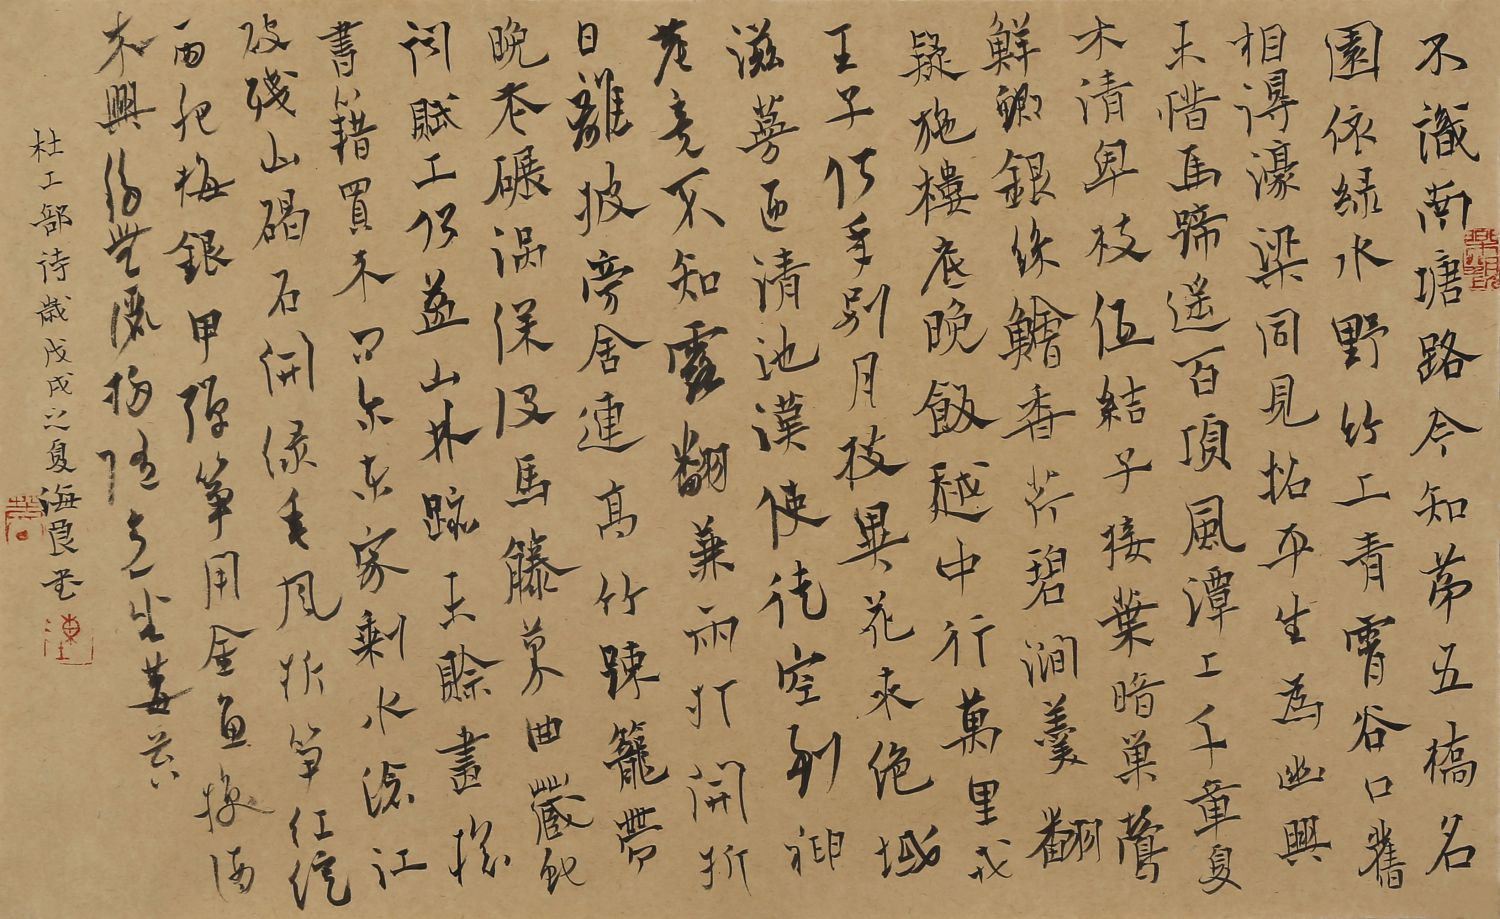 不識南塘路今知第五橋名
園依緑水野竹上青霄谷口舊
相得濠梁同見招平生為幽興
未惜馬蹄遙百頃風潭上千章夏
木清卑枝低結子接葉暗巢鶯
鮮鯽銀絲鱠香芹碧澗羹翻
疑柂樓底晚飯越中行萬里戎
王子何年別月枝異花来絕域
滋蔓匝清池漢使徒空到神
農竟不知露翻兼雨打開折
日離披旁舍連高竹疎籬帶
晚花碾渦深沒馬藤蔓曲藏蛇
詞賦工何益山林跡未賒盡撚
書籍買来問爾東家剩水滄江
破殘山碣石開緑垂風折筍紅綻
雨肥梅銀甲彈箏用金魚換酒
来興移無灑掃隨意坐莓苔
杜工部詩歲戊戌之夏海良書